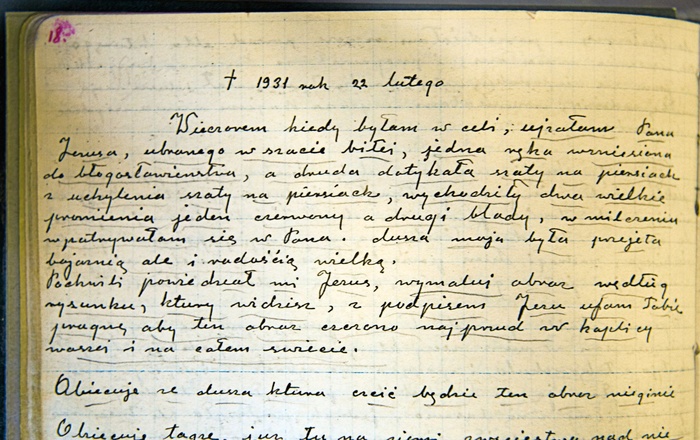 18.
† 1931 rok 22 lutego
Wieczorem kiedy byłam w celi, ujrałam Pana
Jezusa, ubranego w szacie biłej, jedna ręka wzniesiona
do błogosławieństwa, a druda dotykała szaty na piersiach
z uchylenia szaty na piersiach, wychodziły dwa wielkie
promienia jeden czerwony a drugi blady, w milczeniu
wpatrywałam się w Pana. dusza moja była przejęta
bojaznią ale i radością wielką.
Po chwili powiedział mi Jezus, wymaluj obraz według
rysunku, ktury widzisz, z podpisem Jezu ufam Tobie
pragnę aby ten obraz czczono najprzud w kaplicy
waszej i na całem swiecie.
Obiecuje ze dusza ktura czcić będzie ten obraz nieginie
Obiecuje tagze, już tu na ziemi zwyciestwo nad nie